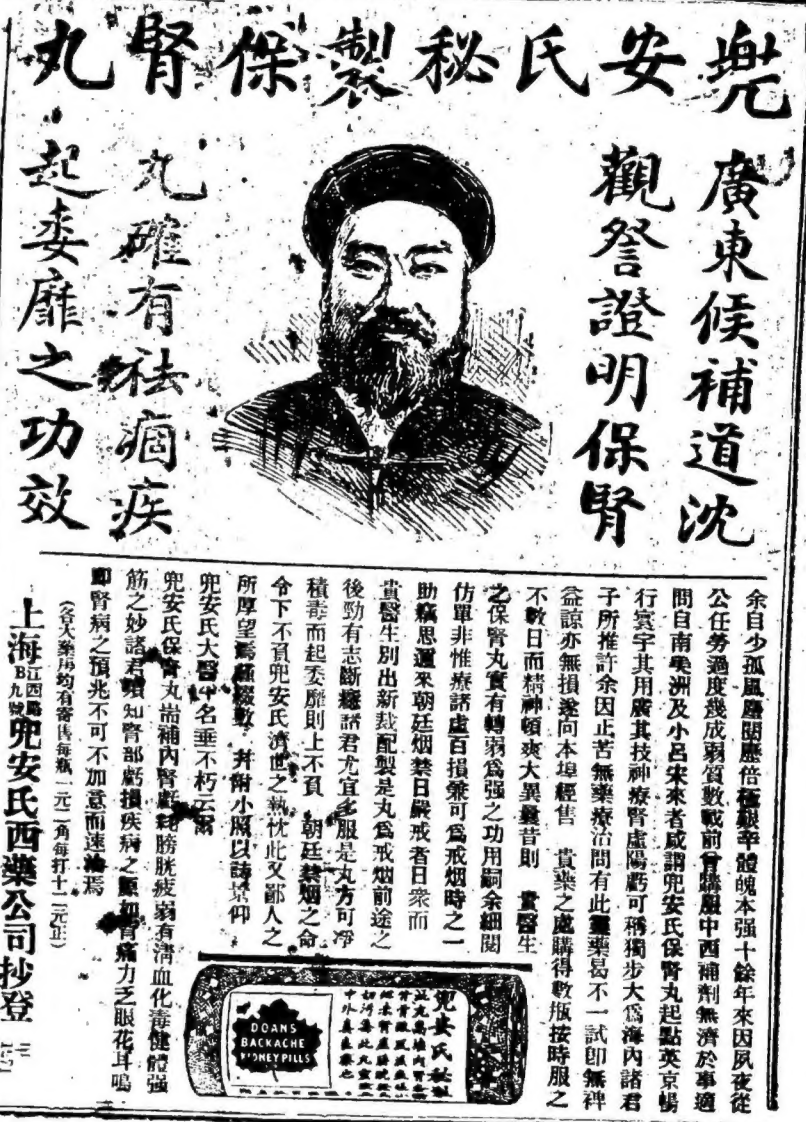 兜安氏秘製保腎丸
廣東候補道沈
觀詧證明保腎
丸確有祛痼疾
起委靡之功效
余自少孤風塵閱歷倍極艱辛體魄本强十餘年來因夙夜從
公任勞過度幾成弱質數載前曾購服中西補劑無濟於事適
問自南美洲及小呂宋來者咸謂兜安氏保腎丸起點英京暢
行寰宇其用廣其技神療腎虛陽虧可稱獨步大爲海內諸君
子所推許余因止苦無藥療治問有此靈藥曷不一試卽無裨
益諒亦無損遂向本埠經售 貴藥之處購得數瓶按時服之
不數日而精神頓爽大異曩昔則 貴醫生
之保腎丸實有轉弱爲强之功用嗣余細閱
仿單非惟療諸虛百損兼可爲戒烟時之一
助竊思邇來朝廷烟禁日嚴戒者日衆而
貴醫生別出新裁配製是丸爲戒烟前途之
後勁有志斷癮諸君尤宜多服是丸方可淨
積毒而起委靡則上不負 朝廷禁烟之命
令下不負兜安氏濟世之熱忱此又鄙人之
所厚望焉謹綴數 幷附小照以誌景仰
兜安氏大醫 名垂不朽云爾
兜安氏保腎丸耑補內腎虧耗膀胱疲弱有淸血化毒健體强
筋之妙諸君須知腎部虧損疾病之 如背痛力乏眼花耳鳴
卽腎病之預兆不可不加意而速治焉
(各大藥房均有寄售每瓶一元二角每打十二元正)
上海江西路B九號兜安氏西藥公司抄登
兜安氏秘製
DOANS
BACKACHE
KIDNEY PILLS